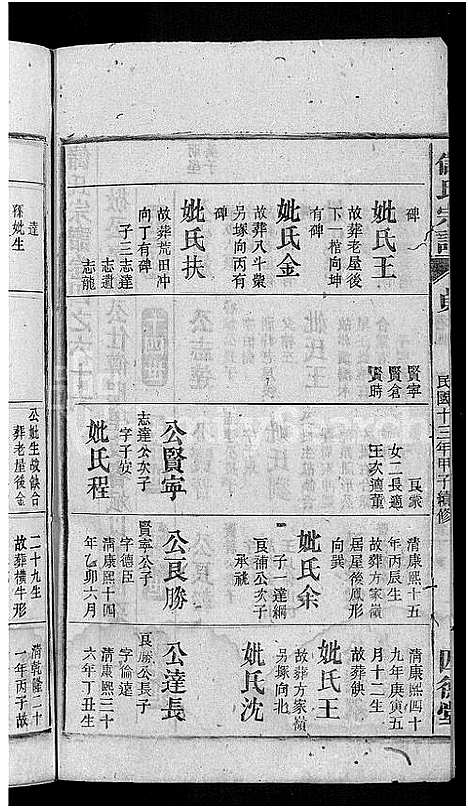 氏宗譜
民國十三年甲子續修
碑
妣氏王
故葬老屋後
下一棺向坤
有碑
妣氏金
故葬八斗柴
另塚向丙有
碑
妣氏扶
故葬荒田冲
向丁有碑
子三志達
志遺
志龍
賢寧
賢倉
賢時
艮叢
女二長適
王次適董
公賢寧
志達公次子
字千攸
妣氏程
清康熙十五
年丙辰生
故葬方家嶺
居屋後鳳形
向巽
妣氏余
子一達綱
艮蒲公次子
承祧
公艮勝
賢寧公子
字德臣
清康熙十四
年乙卯六月
清康熙四十
九年庚寅五
月十二生
故葬缺
妣氏王
故葬方家嶺
另塚向北
妣氏沈
公達長
艮勝公長子
字倫遠
清康熙三十
六年丁丑生
達
孫妣生
公妣生故缺合
葬老屋後金
二十九生
故葬橫牛形
清乾隆二十
一年丙子故